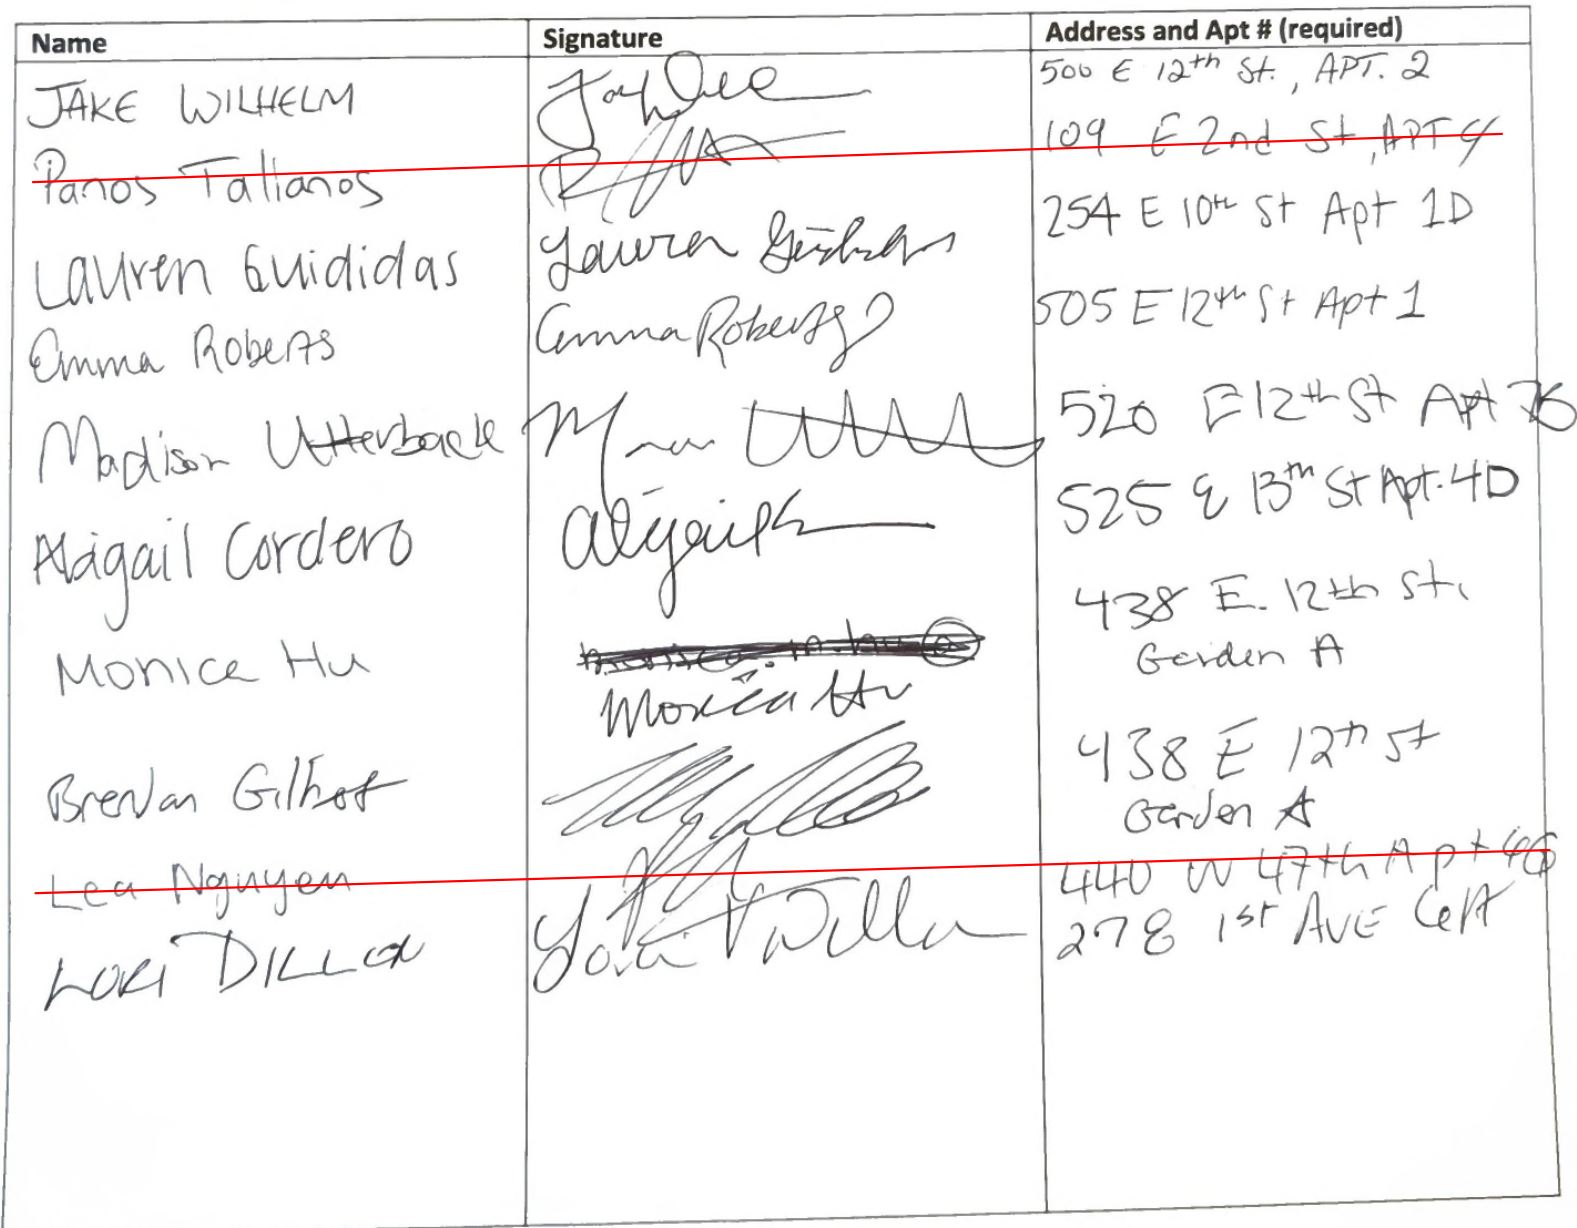 Name Signature Address and Apt # (required)
JAKE WILHELM 500 E 12th St., APT. 2
Panos Talianos 109 E 2nd St, APT
Lauren Guididas Lauren 254 E 10th St Apt 1D
Emma Roberts Emma Roberts 505 E 12th St Apt 1
Madison Utterback 520 E 12th St Apt
Abigail Cordero 525 E 13th St Apt. 4D
Monica Hu Monica Hu 438 E. 12th St.
Garden A
Brendan 438 E 12th St
Garden A
Lea Nguyen 440 W 47th Apt
LORI DILLON Lori Dillon 278 1st AVE